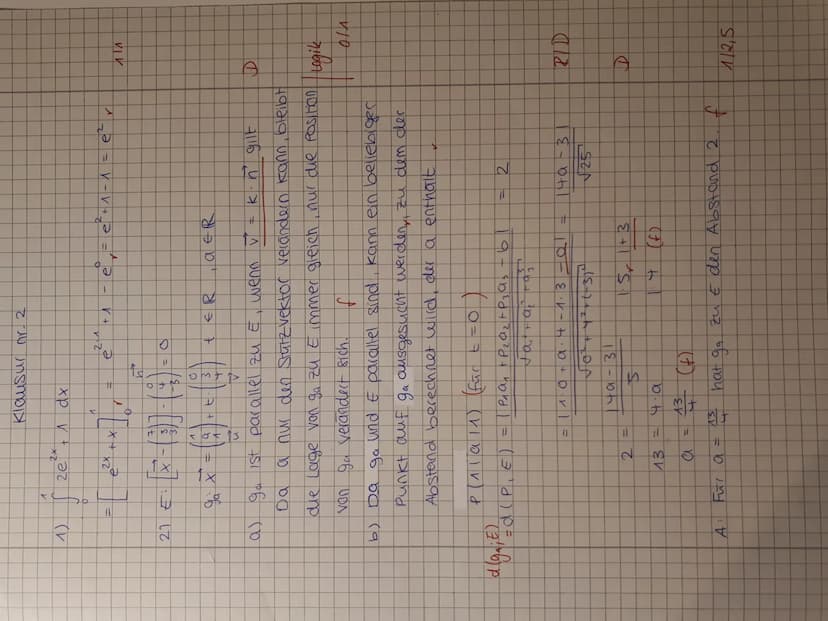 Klausur nr. 2
1) ∫₀¹ 2e^{2x} + 1 dx 1/1
= [e^{2x} + x]₀¹ r = e^{2·1} + 1 - e⁰ r = e² + 1 - 1 = e² r
2) E: [x⃗ - (7 3 3)] · (0 4 -3) = 0
n⃗
gₐ: x⃗ = (1 a 1) + t (0 3 4) t ∈ ℝ, a ∈ ℝ
u⃗ v⃗
a) gₐ ist parallel zu E, wenn v⃗ = k · n⃗ gilt D
Da a nur den Stützvektor verändern kann, bleibt
die Lage von gₐ zu E immer gleich, nur die Position Logik
von gₐ verändert sich. f 0/1
b) Da gₐ und E parallel sind, kann ein beliebiger
Punkt auf gₐ ausgesucht werden, r zu dem der
Abstand berechnet wird, der a enthält. r
P(1|a|1) (für t=0)
d(gₐ;E) = d(P,E) = |p₁a₁ + p₂a₂ + p₃a₃ - b| / √(a₁² + a₂² + a₃²) = 2
= |1·0 + a·4 - 1·3 - a| / √(0² + 4² + (-3)²) = |4a - 3| / √25 R/D
2 = |4a - 3| / 5 |·5 r |+3 D
13 = 4·a |4 (f)
a = 13/4 (f)
A: Für a = 13/4 hat gₐ zu E den Abstand 2. f 1/2,5